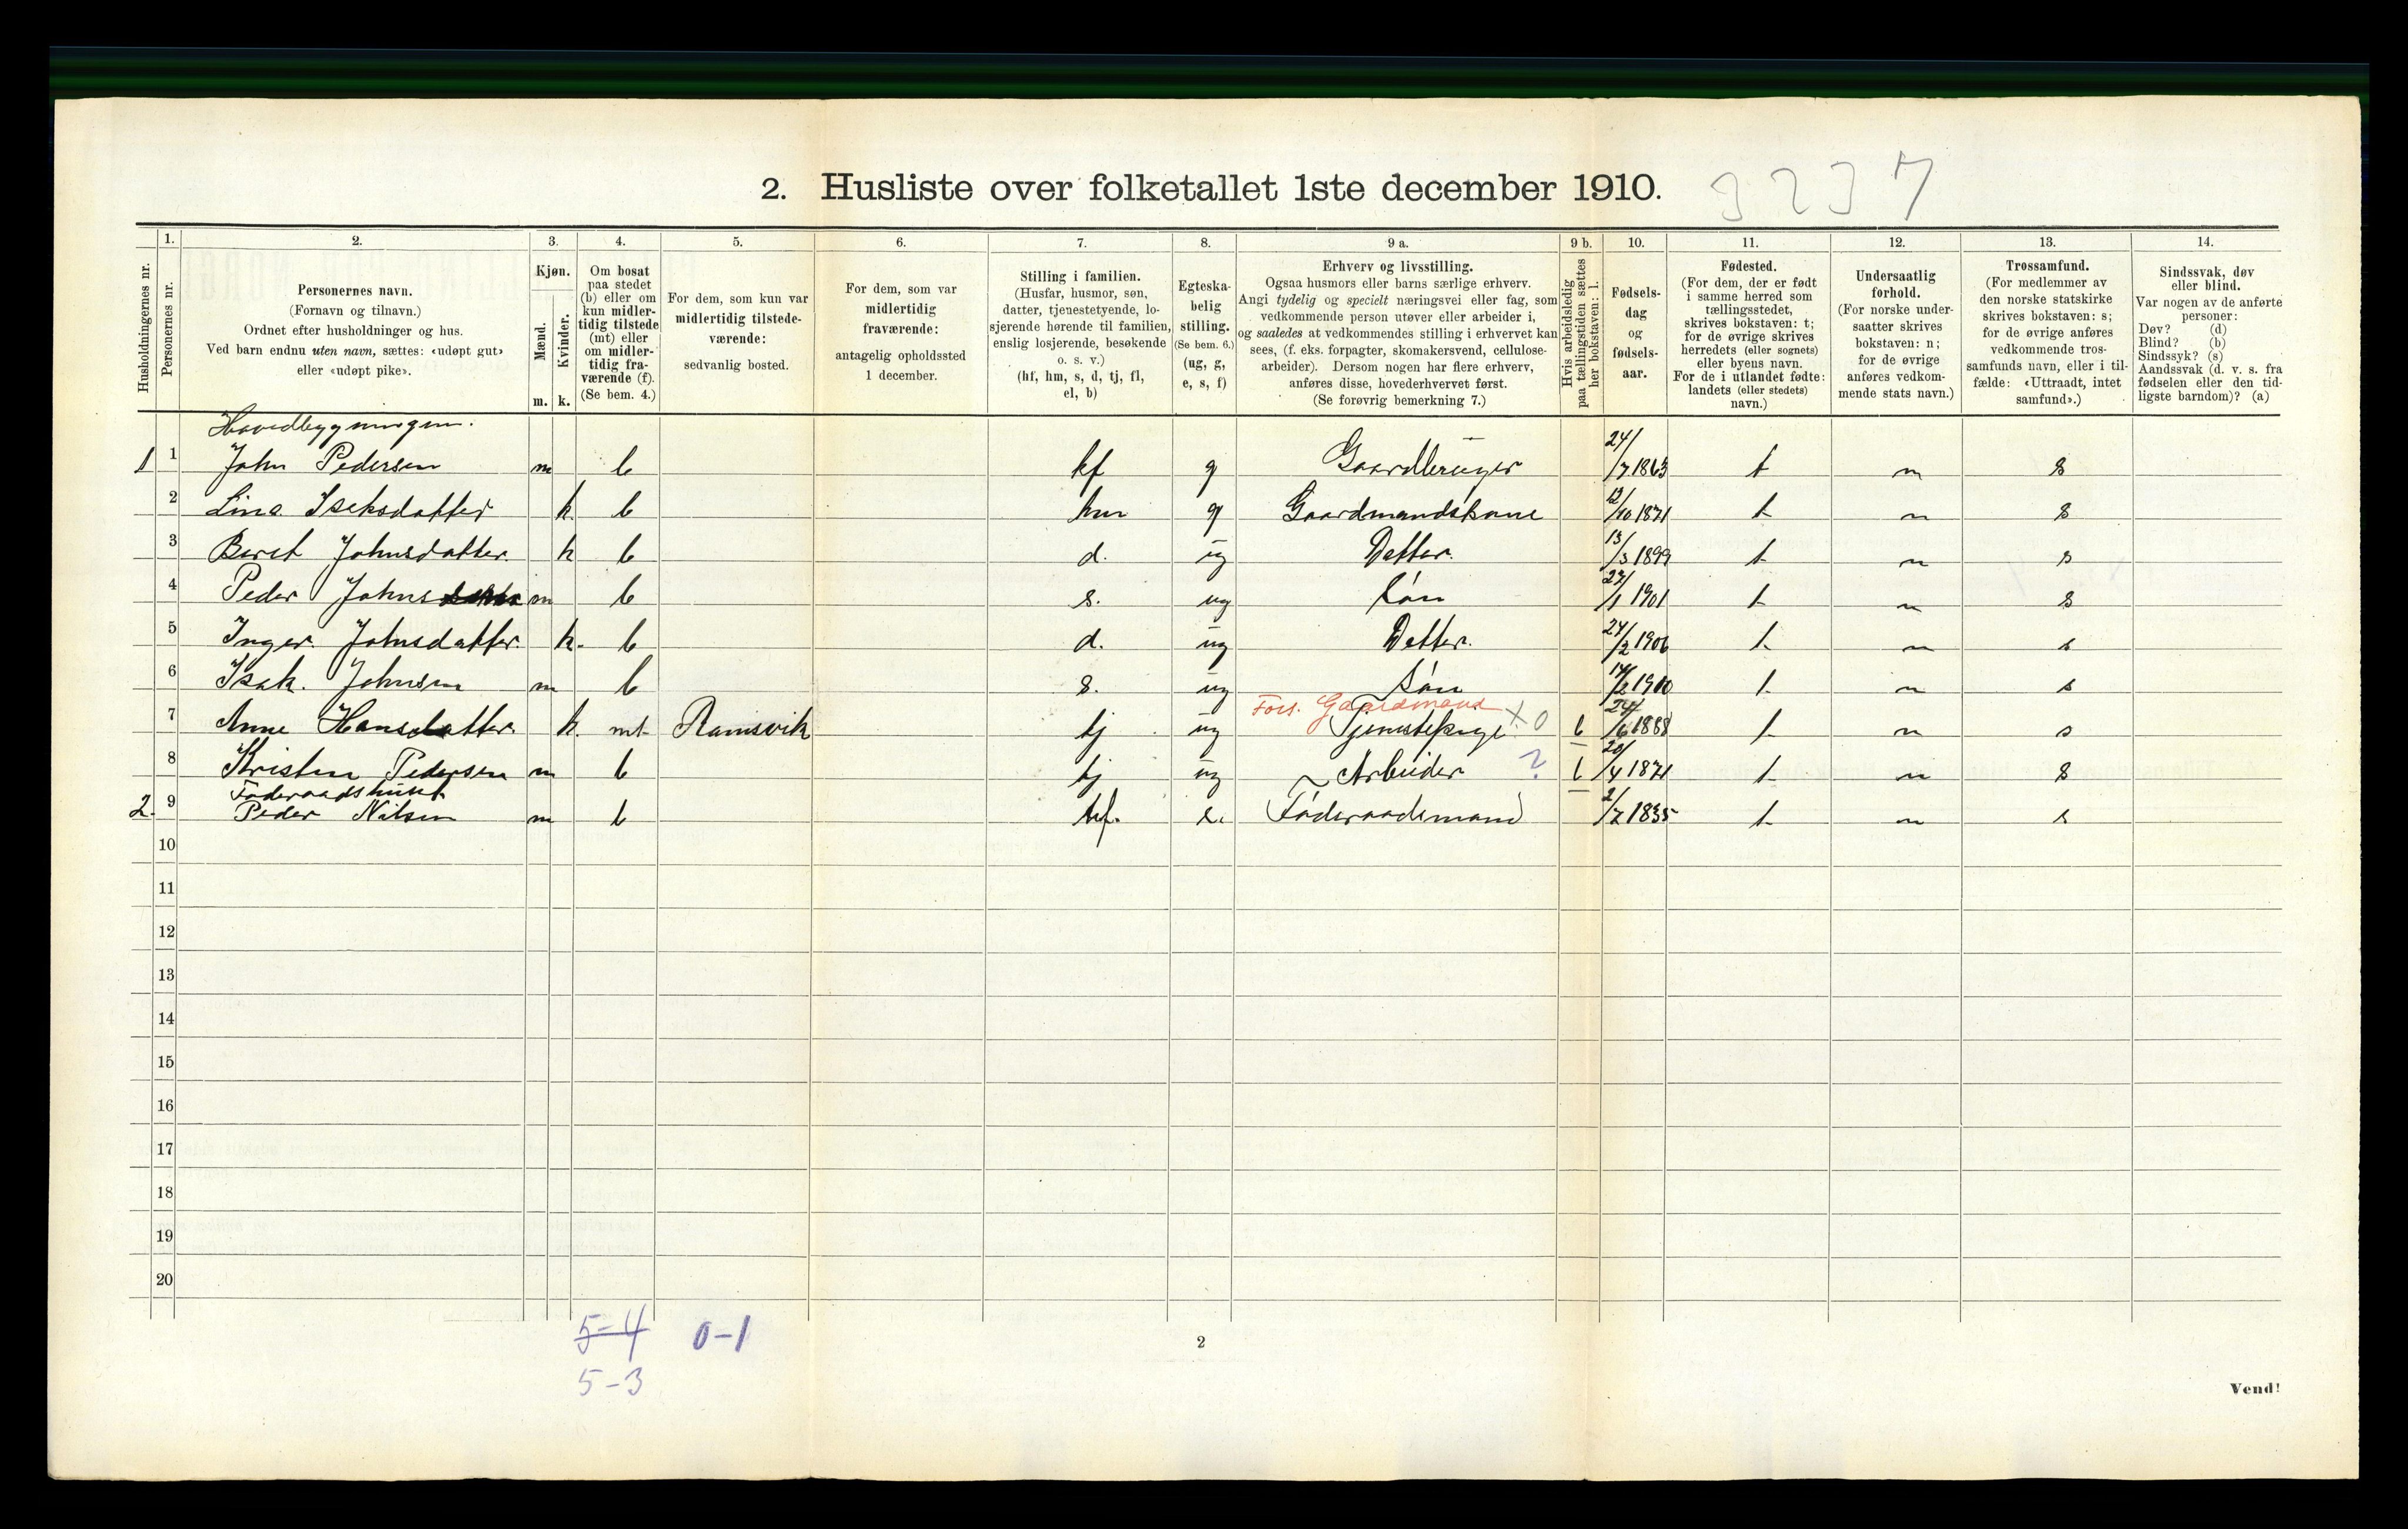 2. Husliste over folketallet 1ste december 1910. 3237
Husholdningernes nr.
1. Personernes nr.
2. Personernes navn.
(Fornavn og tilnavn.)
Ordnet efter husholdninger og hus.
Ved barn endnu uten navn, sættes: «udøpt gut»
eller «udøpt pike».
3. Kjøn.
Mænd. m.
Kvinder. k.
4. Om bosat
paa stedet
(b) eller om
kun midler-
tidig tilstede
(mt) eller
om midler-
tidig fra-
værende (f).
(Se bem. 4.)
5. For dem, som kun var
midlertidig tilstede-
værende:
sedvanlig bosted.
6. For dem, som var
midlertidig
fraværende:
antagelig opholdssted
1 december.
7. Stilling i familien.
(Husfar, husmor, søn,
datter, tjenestetyende, lo-
sjerende hørende til familien,
enslig losjerende, besøkende
o. s. v.)
(hf, hm, s, d, tj, fl,
el, b)
8. Egteska-
belig
stilling.
(Se bem. 6.)
(ug, g,
e, s, f)
9 a. Erhverv og livsstilling.
Ogsaa husmors eller barns særlige erhverv.
Angi tydelig og specielt næringsvei eller fag, som
vedkommende person utøver eller arbeider i,
og saaledes at vedkommendes stilling i erhvervet kan
sees, (f. eks. forpagter, skomakersvend, cellulose-
arbeider). Dersom nogen har flere erhverv,
anføres disse, hovederhvervet først.
(Se forøvrig bemerkning 7.)
9 b. Hvis arbeidsledig
paa tællingstiden sættes
her bokstaven: l.
10. Fødsels-
dag
og
fødsels-
aar.
11. Fødested.
(For dem, der er født
i samme herred som
tællingsstedet,
skrives bokstaven: t;
for de øvrige skrives
herredets (eller sognets)
eller byens navn.
For de i utlandet fødte:
landets (eller stedets)
navn.)
12. Undersaatlig
forhold.
(For norske under-
saatter skrives
bokstaven: n;
for de øvrige
anføres vedkom-
mende stats navn.)
13. Trossamfund.
(For medlemmer av
den norske statskirke
skrives bokstaven: s;
for de øvrige anføres
vedkommende tros-
samfunds navn, eller i til-
fælde: «Uttraadt, intet
samfund».)
14. Sindssvak, døv
eller blind.
Var nogen av de anførte
personer:
Døv? (d)
Blind? (b)
Sindssyk? (s)
Aandssvak (d. v. s. fra
fødselen eller den tid-
ligste barndom)? (a)
Hovedbygningen.
1 1 John Pedersen m b hf g Gaardbruger 24/7 1863 t n s
2 Lina Isaksdatter k b hm g Gaardmandskone 12/10 1871 t n s
3 Beret Johnsdatter. k b d. ug Datter. 13/3 1899 t n s
4 Peder Johns m b s. ug Søn 27/1 1901 t n s
5 Inger Johnsdatter. k. b d. ug Datter. 24/2 1906 t n s
6 Isak. Johnsen m b s. ug Søn 14/2 1910 t n s
Fors. Gaardmand
7 Anne Hansdatter. k. mt Ramsvik tj ug Tjenestepige X 0 l 24/6 1888 t n s
8 Kristen Pedersen m b tj ug ~ Arbeider ? l 20/4 1871 t n s
Føderaadshuset
2. 9 Peder Nilsen m b hf. e. Føderaadsmand 2/7 1835 t n s
10
11
12
13
14
15
16
17
18
19
20
5-4 0-1
5-3
2
Vend!